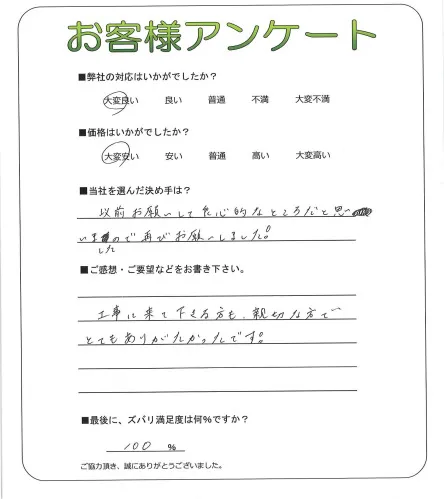 お客様アンケート
■弊社の対応はいかがでしたか？
大変良い 良い 普通 不満 大変不満
■価格はいかがでしたか？
大変安い 安い 普通 高い 大変高い
■当社を選んだ決め手は？
以前お願いして良心的なところだと思い
いましたので再びお願いしました!
■ご感想・ご要望などをお書き下さい。
工事に来て下さる方も、親切な方で
とてもありがたかったです!
■最後に、ズバリ満足度は何%ですか？
100 %
ご協力頂き、誠にありがとうございました。